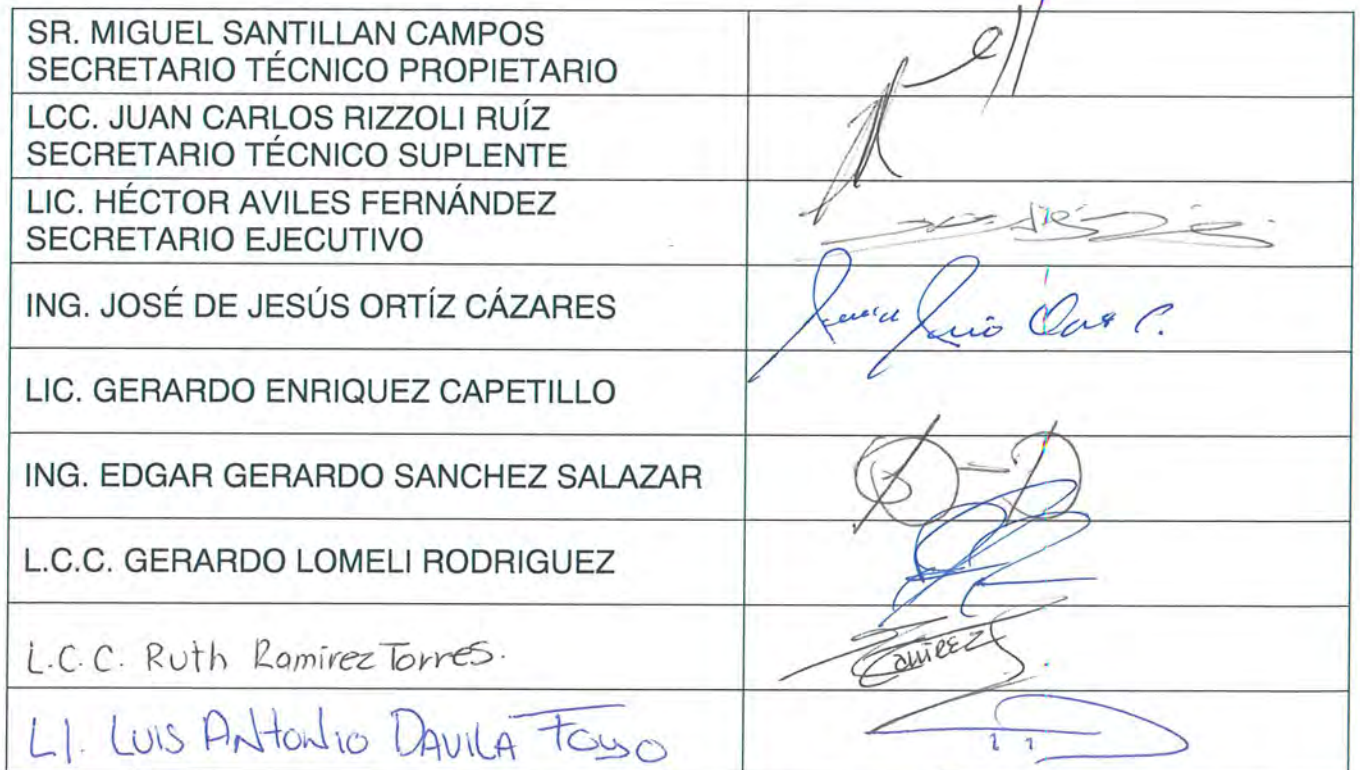 SR. MIGUEL SANTILLAN CAMPOS
SECRETARIO TÉCNICO PROPIETARIO
LCC. JUAN CARLOS RIZZOLI RUÍZ
SECRETARIO TÉCNICO SUPLENTE
LIC. HÉCTOR AVILES FERNÁNDEZ
SECRETARIO EJECUTIVO
ING. JOSÉ DE JESÚS ORTÍZ CÁZARES
LIC. GERARDO ENRIQUEZ CAPETILLO
ING. EDGAR GERARDO SANCHEZ SALAZAR
L.C.C. GERARDO LOMELI RODRIGUEZ
L.C.C. Ruth Ramirez Torres.
Ramirez
L.I. LUIS ANTONIO DAVILA